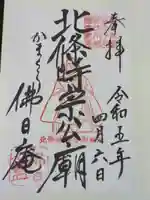 奉拝
令和五年
四月六日
北條時宗公廟
かまくら
佛日庵